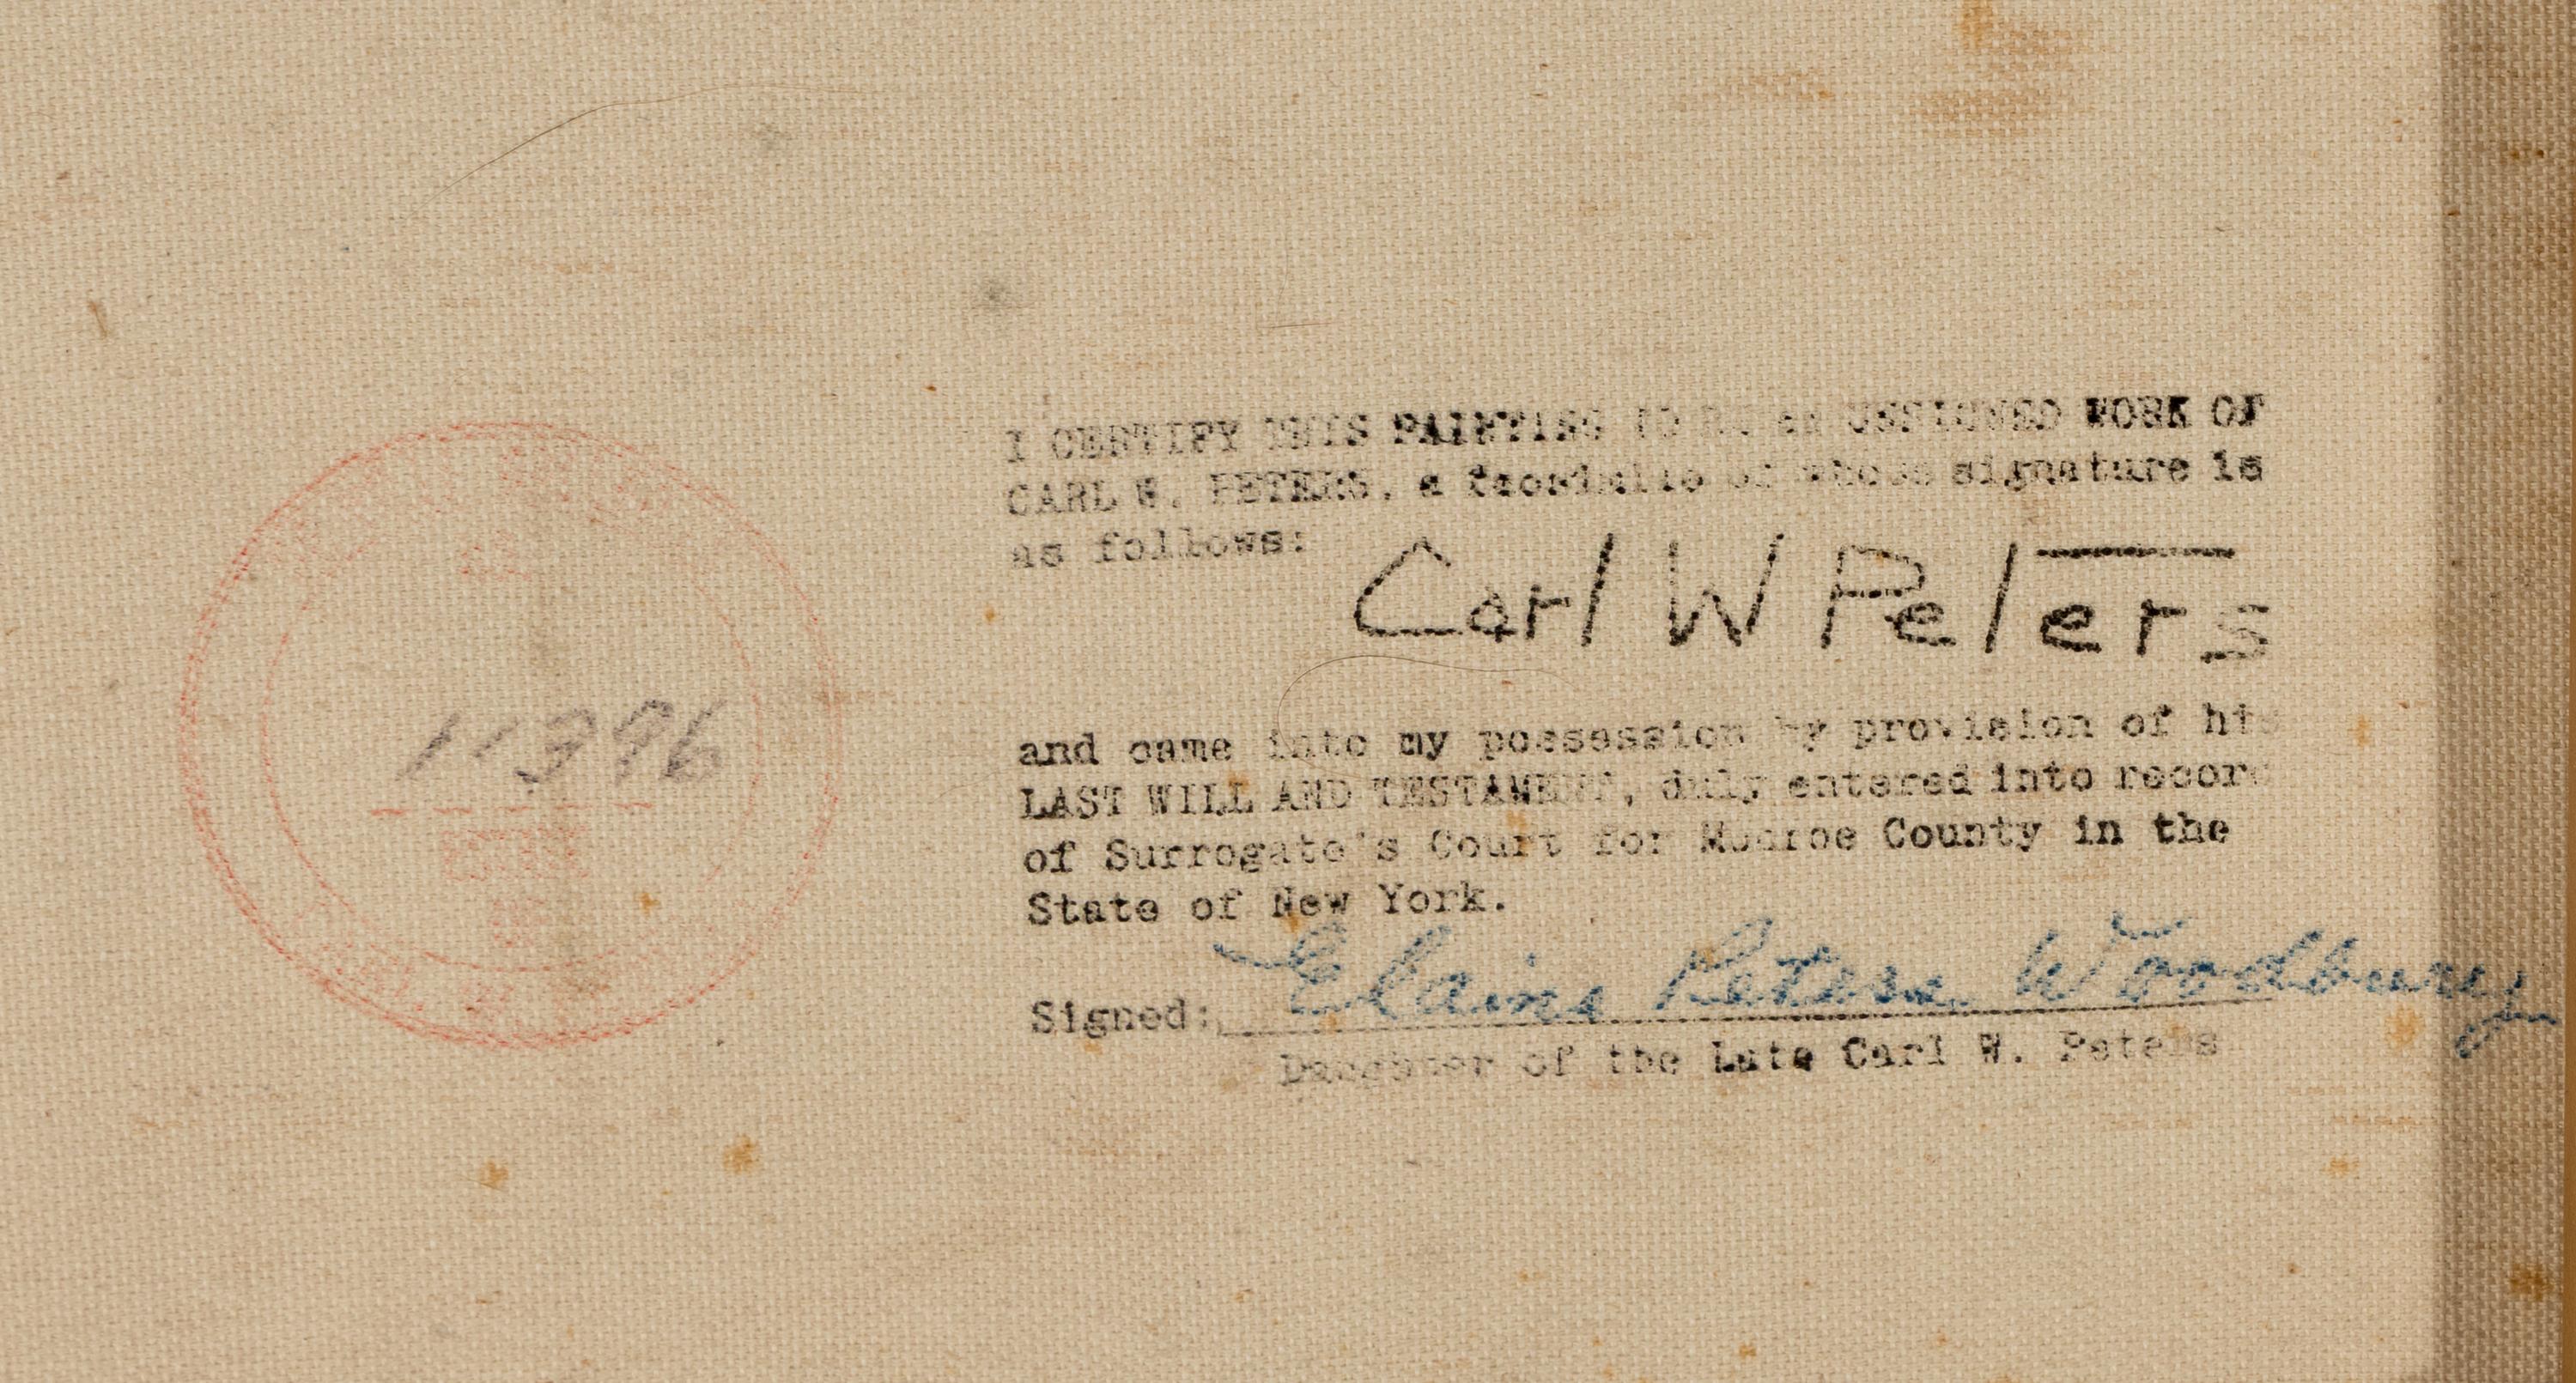 I CERTIFY THIS PAINTING TO BE an UNSIGNED WORK OF
CARL W. PETERS, a facsimile of whose signature is
as follows:
Carl W Peters
11396
and came into my possession by provision of his
LAST WILL AND TESTAMENT, duly entered into record
of Surrogate's Court for Monroe County in the
State of New York.
Signed: Elaine Peters Woodbury
Daughter of the Late Carl W. Peters